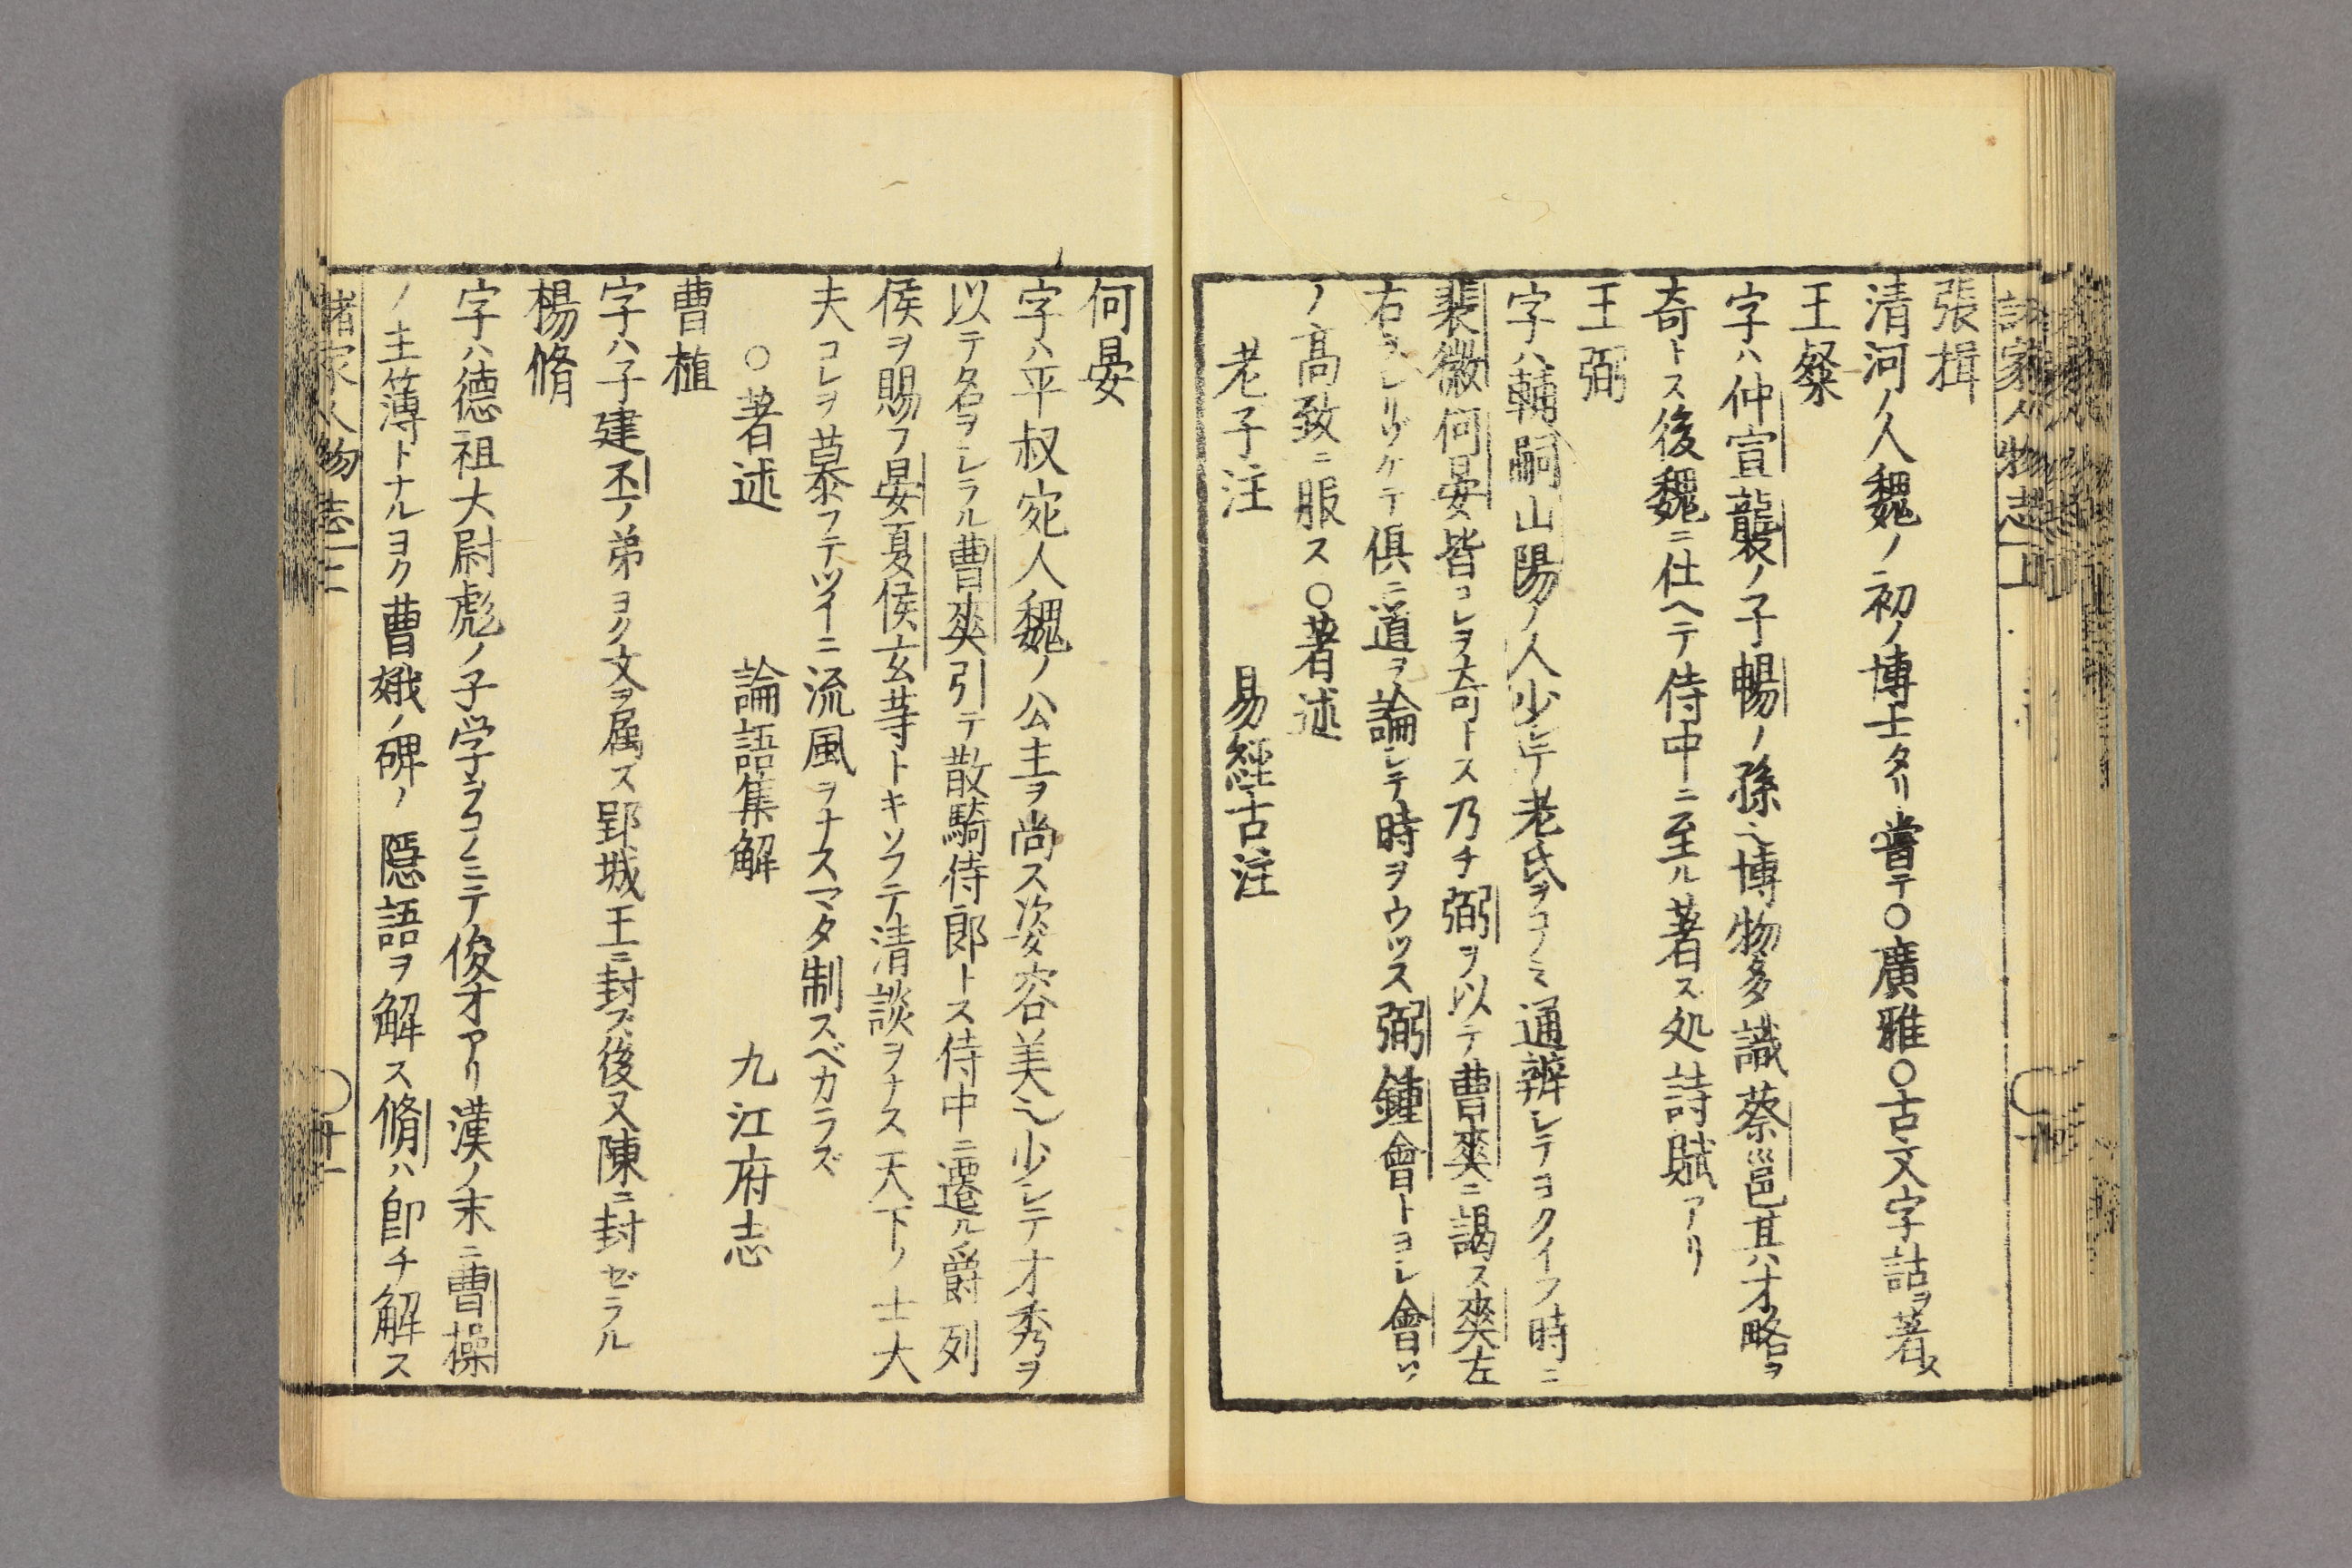 張揖
清河ノ人魏ノ初ノ博士タリ嘗テ○廣雅○古文字詁ヲ著ス
王粲
字ハ仲宣龔ノ子暢ノ孫也博物多識蔡邕其ハ才略ヲ
奇トス後魏ニ仕ヘテ侍中ニ至ル著ス処詩賦アリ
王弼
字ハ輔嗣山陽ノ人少シテ老氏ヲコノミ通辨シテヨクイフ時ニ
裴徽何晏皆コレヲ奇トス乃チ弼ヲ以テ曹爽ニ謁ス爽左
右ヲシリゾケテ倶ニ道ヲ論シテ時ヲウツス弼鍾會トヨシ會ソ
ノ高致ニ服ス○著述
老子注　易經古注
何晏
字ハ平叔宛人魏ノ公主ヲ尚ス姿容美也少シテ才秀ヲ
以テ名ヲシラル曹爽引テ散騎侍郎トス侍中ニ遷ル爵列
侯ヲ賜フ晏夏侯玄等トキソフテ清談ヲナス天下ノ士大
夫コレヲ慕フテツイニ流風ヲナスマタ制スベカラズ
○著述　論語集解　九江府志
曹植
字ハ子建丕ノ弟ヨク文ヲ属ス郢城王ニ封ズ後又陳ニ封ゼラル
楊脩
字ハ德祖大尉彪ノ子学ヲコノミテ俊才アリ漢ノ末ニ曹操
ノ主簿トナルヨク曹娥ノ碑ノ隠語ヲ解ス脩ハ即チ解ス
諸家人物志